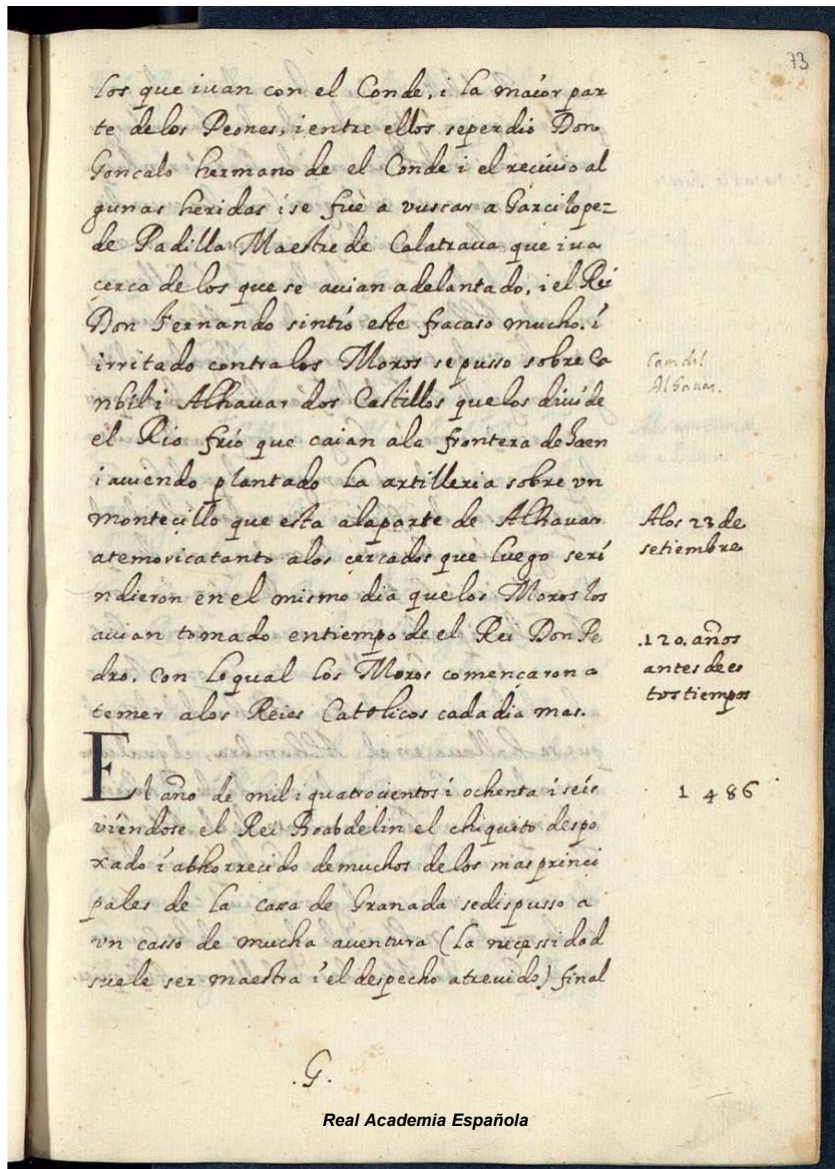 73
los que iuan con el Conde, i la maior par
te de los Peones, i entre ellos se perdio Don
Goncalo hermano de el Conde i el reciuio al
gunas heridas i se fue a vuscar a Garcilopez
de Padilla Maestre de Calatraua que iua
cerca de los que se auian adelantado, i el Rei
Don Fernando sintió este fracaso mucho, i
irritado contra los Moros se pusso sobre Ca
nbil i Alhauar dos Castillos que los diuide
el Rio frio que caian a la frontera de Jaen
i auiendo plantado la artilleria sobre vn
montecillo que esta a la parte de Alhauar
atemorica tanto a los cercados que luego se ri
ndieron en el mismo dia que los Moros los
auian tomado en tiempo de el Rei Don Pe
dro. con lo qual los Moros començaron a
temer a los Reies Catolicos cada dia mas.
El año de mil i quatrocientos i ochenta i seis
viendose el Rei Boabdelin el chiquito despo
xado i abhorrecido de muchos de los mas princi
pales de la casa de Granada se dispusso a
vn casso de mucha auentura (la necessidad
suele ser maestra i el despecho atreuido) final
Cambil
Alhauar.
A los 23 de
setiembre
.120. años
antes de es
tos tiempos
1486
.G.
Real Academia Española